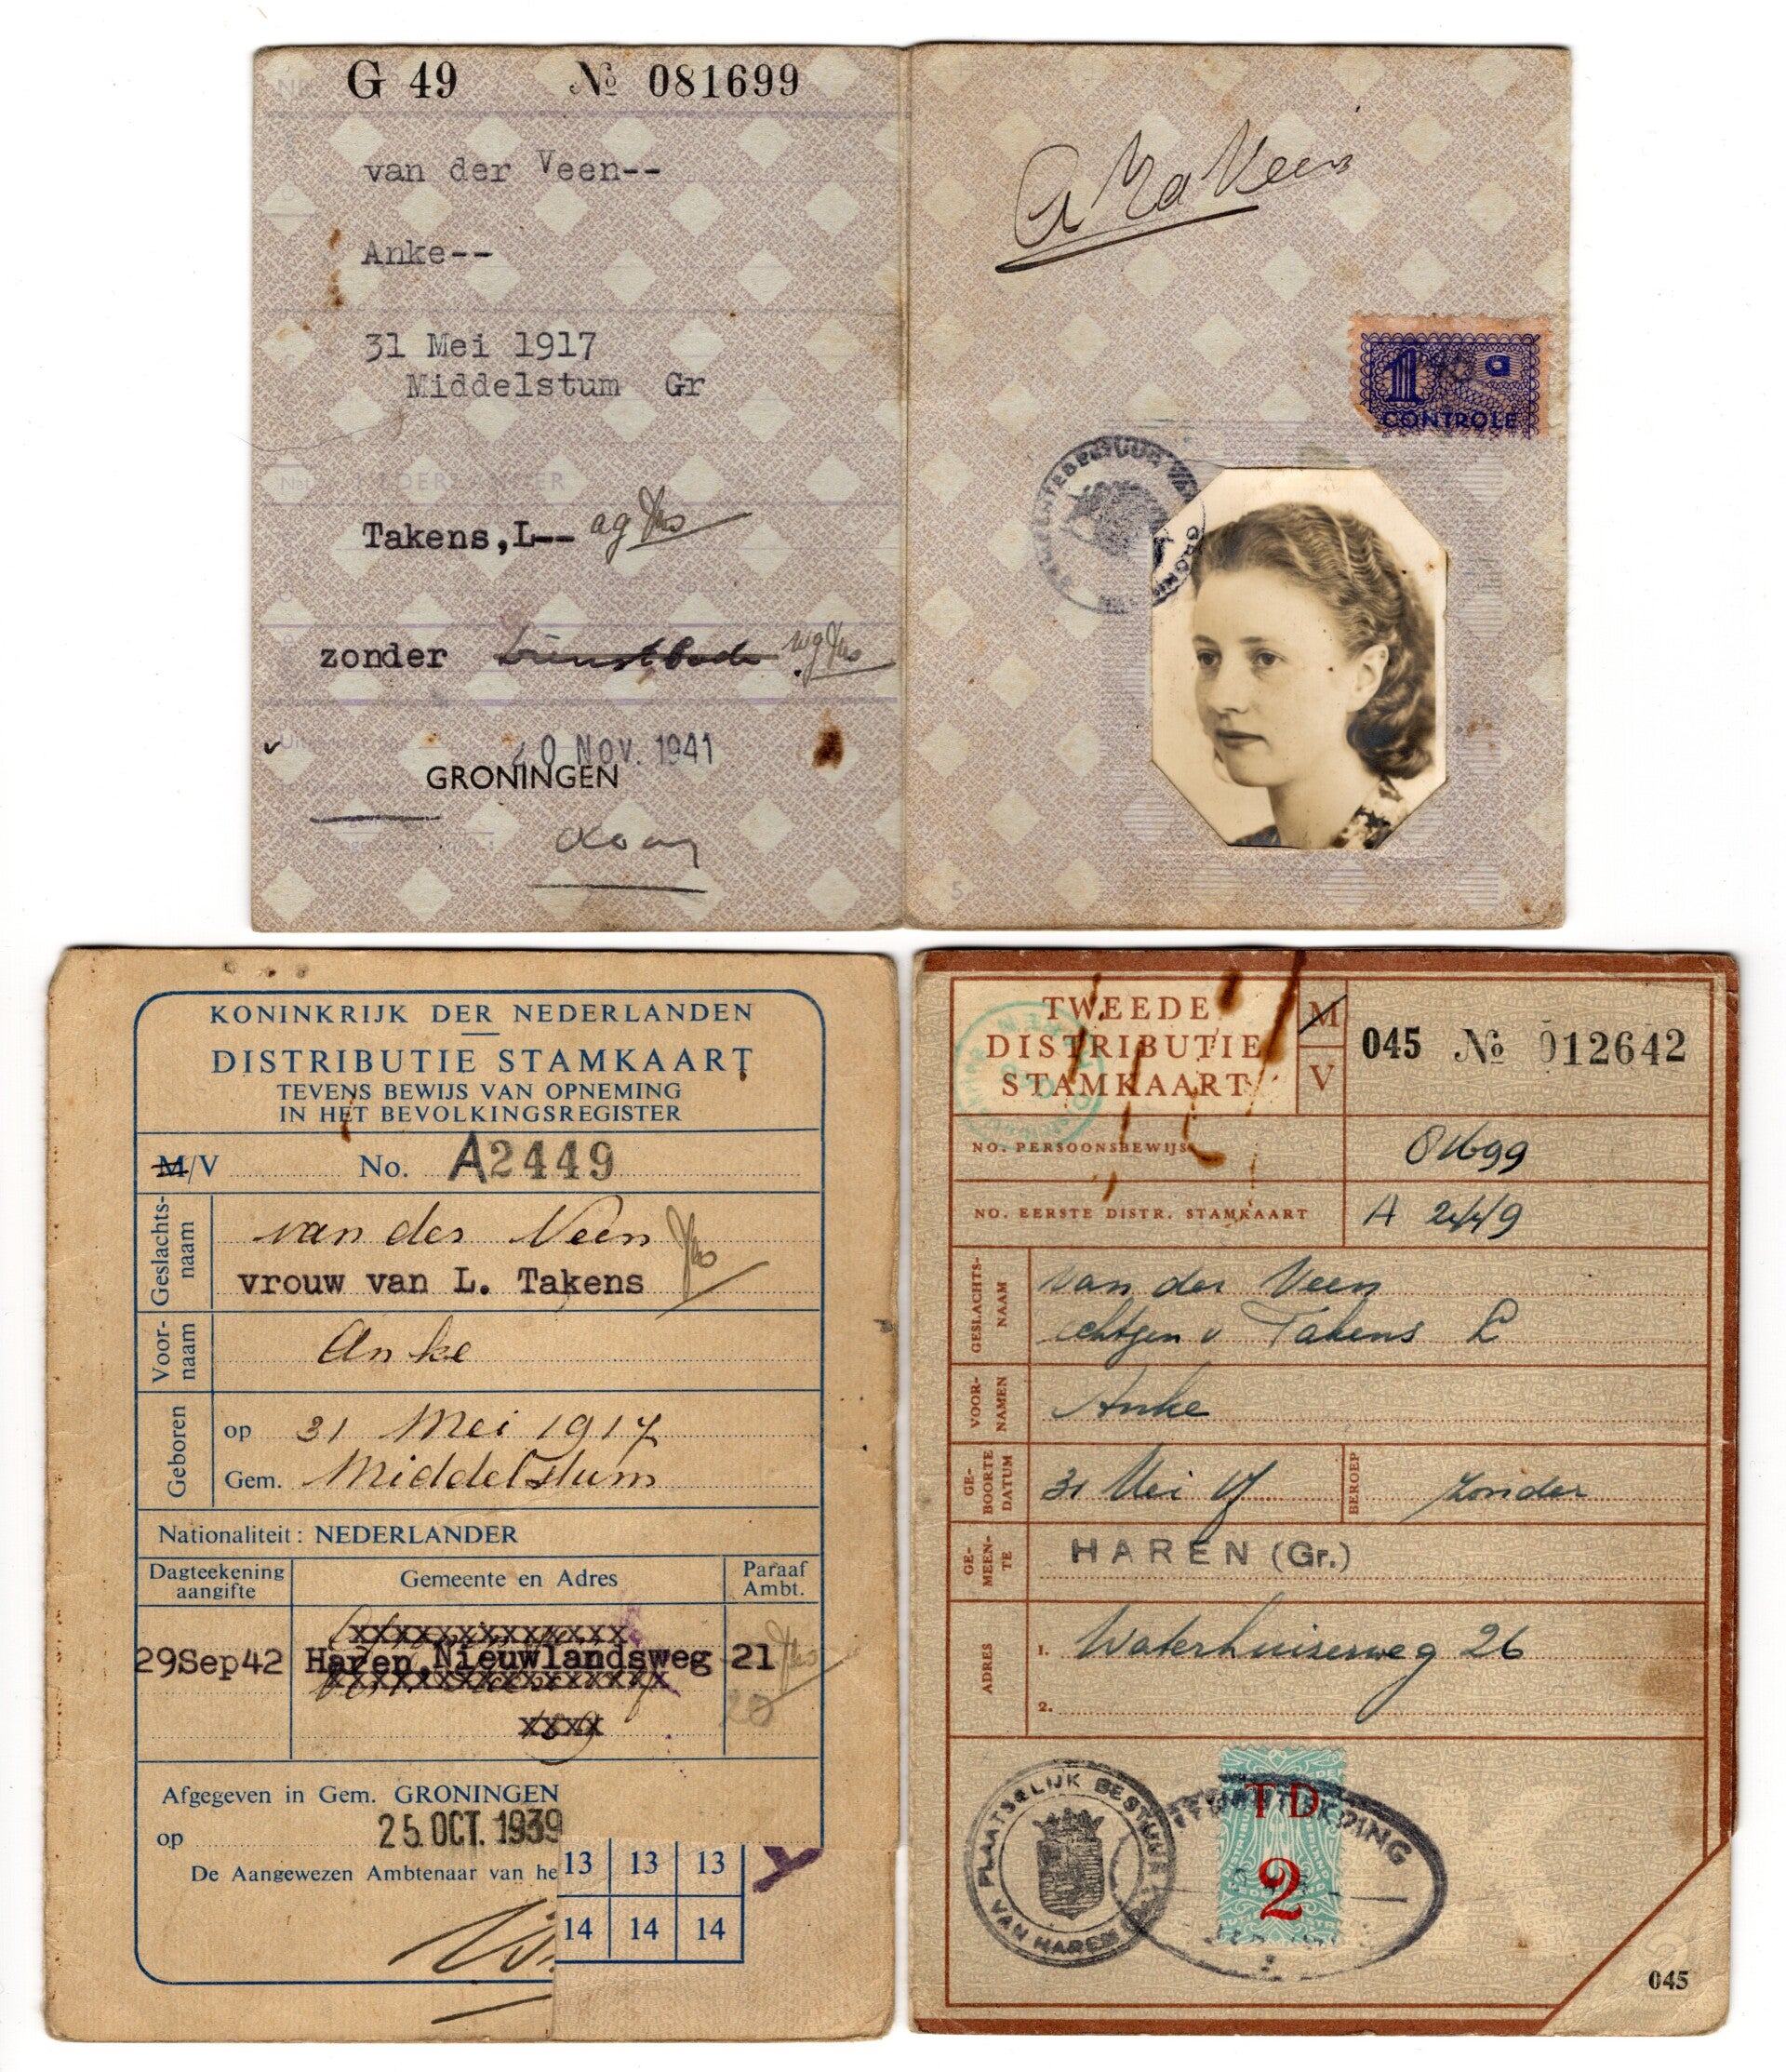 G 49 № 081699
van der Veen--
Anke--
31 Mei 1917
Middelstum Gr
NEDERLANDER
Takens,L--
zonder Dienstbode
20 NOV. 1941
GRONINGEN
A vd Veen
1 a
CONTROLE
5
KONINKRIJK DER NEDERLANDEN
DISTRIBUTIE STAMKAART
TEVENS BEWIJS VAN OPNEMING
IN HET BEVOLKINGSREGISTER
M/V No. A2449
Geslachts-
naam
van der Veen
vrouw van L. Takens
Voor-
naam
Anke
Geboren
op 31 Mei 1917
Gem. Middelstum
Nationaliteit: NEDERLANDER
Dagteekening
aangifte
Gemeente en Adres
Paraaf
Ambt.
xxxxxxxxxxxxx
29Sep42 Haren,Nieuwlandsweg 21
xxxxxxxxxxxxxxxx
28
xxxx
Afgegeven in Gem. GRONINGEN
op 25 OCT. 1939
De Aangewezen Ambtenaar van he
13 13 13
14 14 14
TWEEDE
DISTRIBUTIE
STAMKAART
M
V
045 № 012642
NO. PERSOONSBEWIJS 81699
NO. EERSTE DISTR. STAMKAART A 2449
GESLACHTS-
NAAM
van der Veen
echtgen v Takens L
VOOR-
NAMEN
Anke
GE-
BOORTE
DATUM
31 Mei 17
BEROEP
zonder
GE-
MEEN-
TE
HAREN (Gr.)
ADRES
1. Waterhuizerweg 26
2.
PLAATSELIJK BESTUUR VAN HAREN
TD
2
045